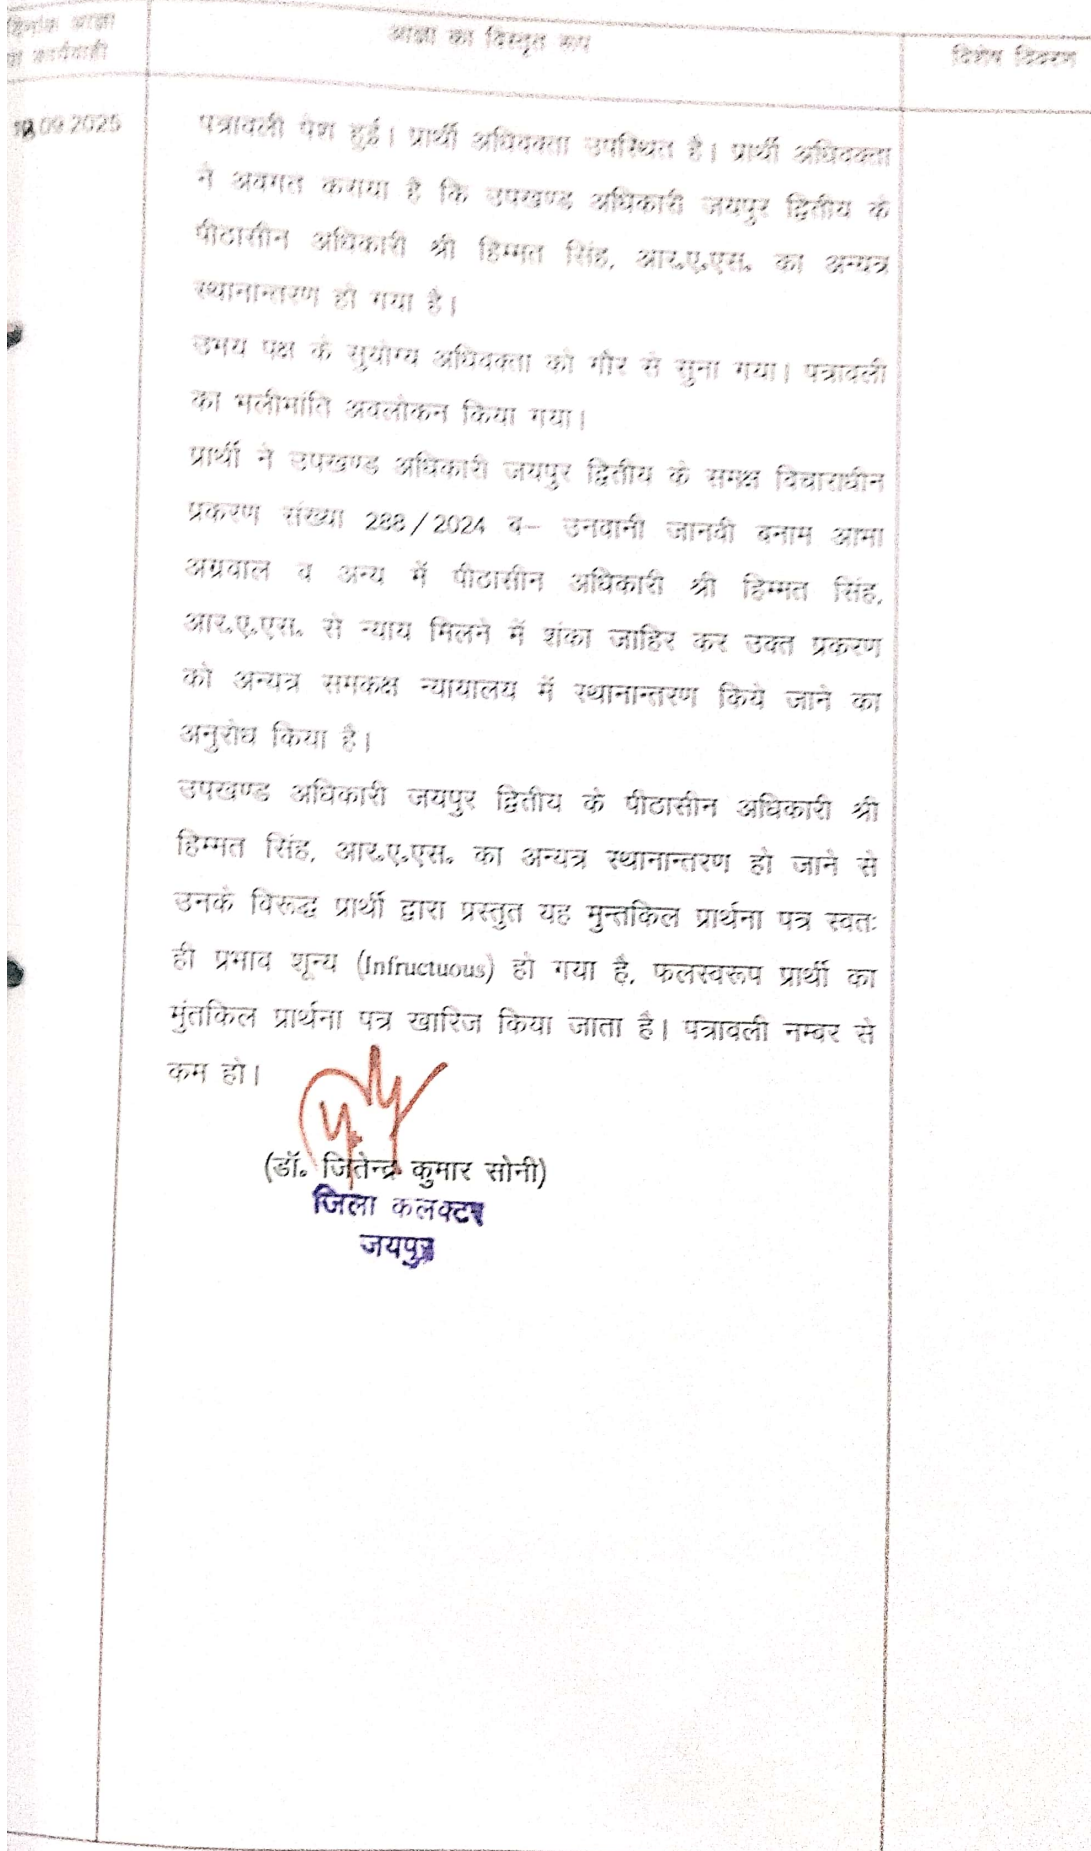 दिनांक आज्ञा
या कार्यवाही
आज्ञा का विस्तृत रूप
विशेष विवरण
.09.2025
पत्रावली पेश हुई। प्रार्थी अधिवक्ता उपस्थित है। प्रार्थी अधिवक्ता
ने अवगत कराया है कि उपखण्ड अधिकारी जयपुर द्वितीय के
पीठासीन अधिकारी श्री हिम्मत सिंह, आर.ए.एस. का अन्यत्र
स्थानान्तरण हो गया है।
उभय पक्ष के सुयोग्य अधिवक्ता को गौर से सुना गया। पत्रावली
का भलीभांति अवलोकन किया गया।
प्रार्थी ने उपखण्ड अधिकारी जयपुर द्वितीय के समक्ष विचाराधीन
प्रकरण संख्या 288/2024 व- उनवानी जानवी बनाम आभा
अग्रवाल व अन्य में पीठासीन अधिकारी श्री हिम्मत सिंह,
आर.ए.एस. से न्याय मिलने में शंका जाहिर कर उक्त प्रकरण
को अन्यत्र समकक्ष न्यायालय में स्थानान्तरण किये जाने का
अनुरोध किया है।
उपखण्ड अधिकारी जयपुर द्वितीय के पीठासीन अधिकारी श्री
हिम्मत सिंह, आर.ए.एस. का अन्यत्र स्थानान्तरण हो जाने से
उनके विरूद्ध प्रार्थी द्वारा प्रस्तुत यह मुन्तकिल प्रार्थना पत्र स्वतः
ही प्रभाव शून्य (Infructuous) हो गया है, फलस्वरूप प्रार्थी का
मुंतकिल प्रार्थना पत्र खारिज किया जाता है। पत्रावली नम्बर से
कम हो।
(डॉ. जितेन्द्र कुमार सोनी)
जिला कलक्टर
जयपुर